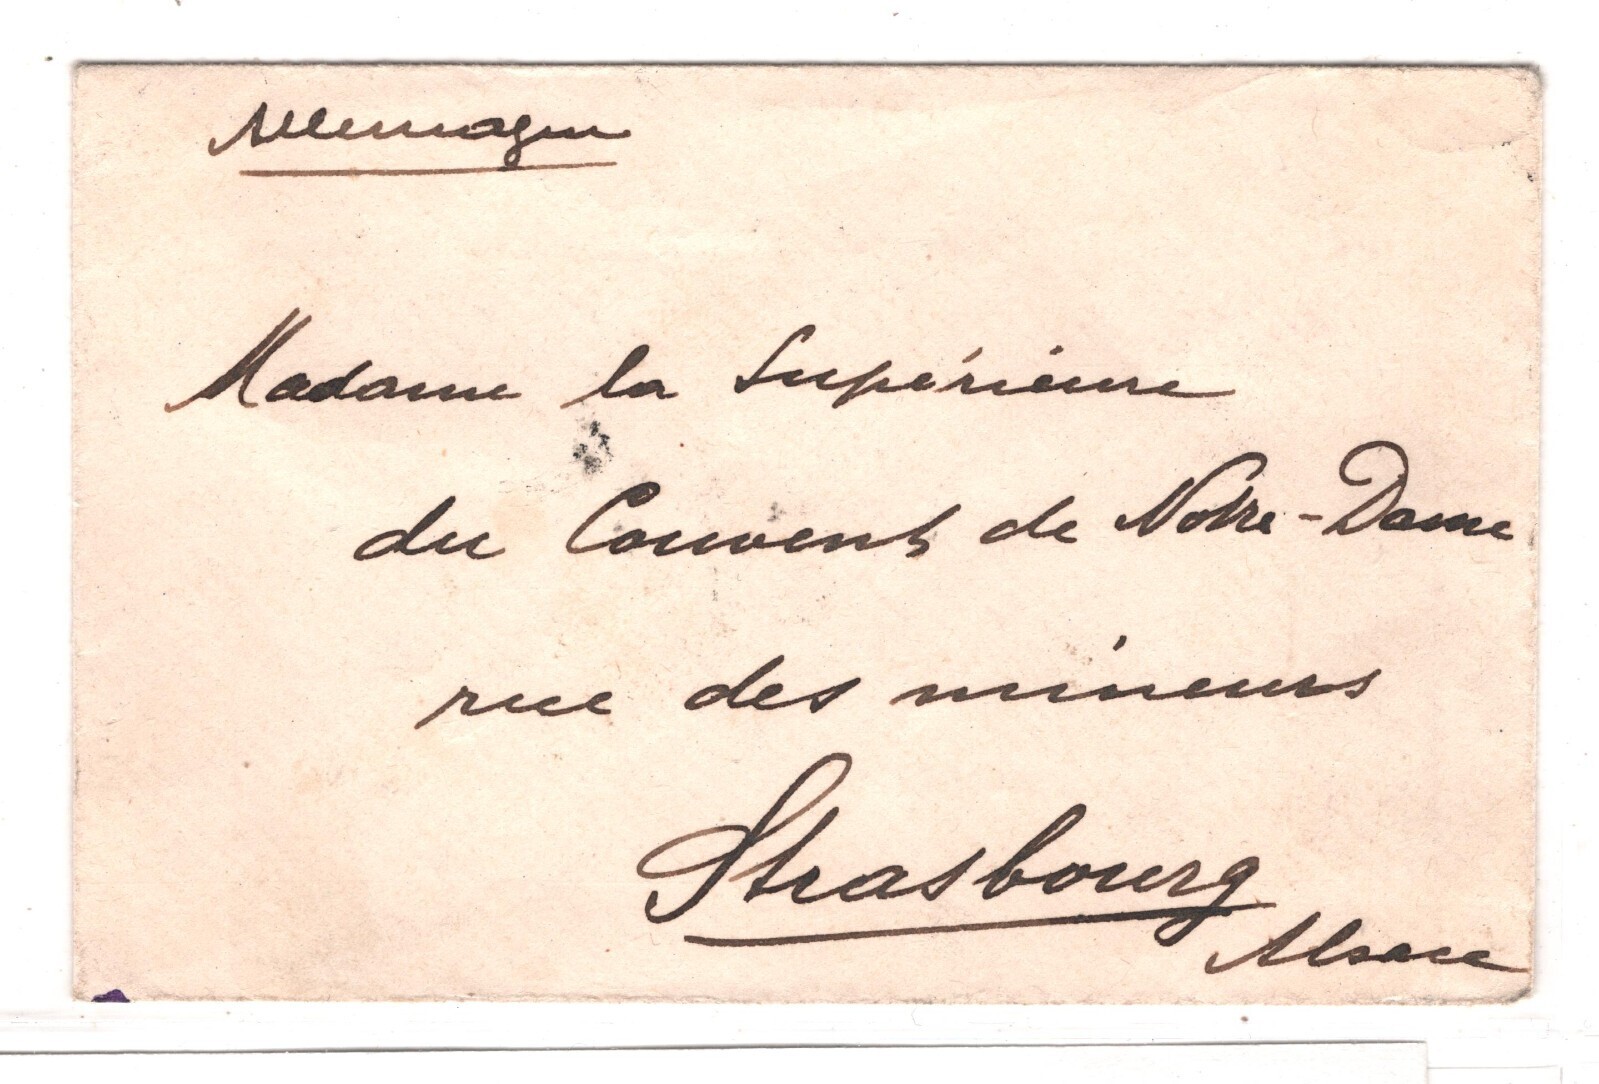 Allemagne
Madame la Supérieure
du Couvent de Notre-Dame
rue des mineurs
Strasbourg
Alsace